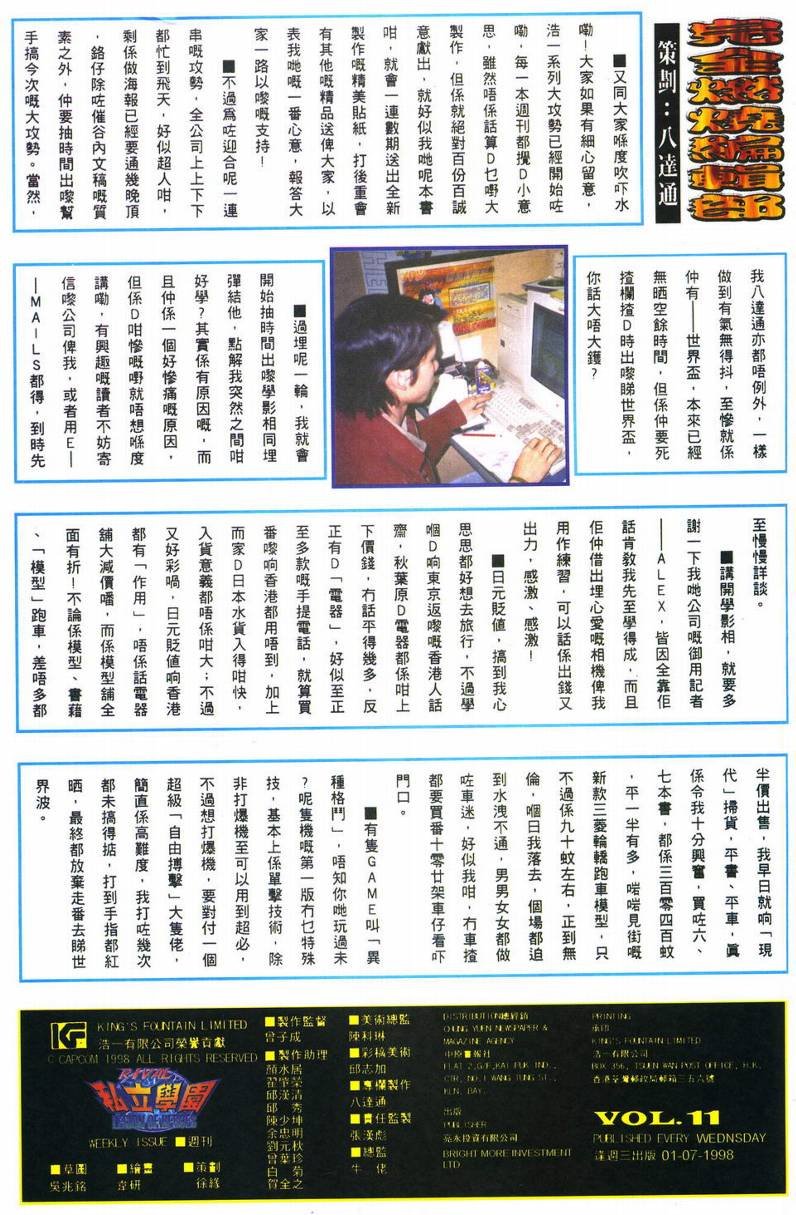 完全燃燒編輯部
策劃：八達通
■又同大家喺度吹吓水
嘞！大家如果有細心留意，
浩一系列大攻勢已經開始咗
嘞，每一本週刊都攪D小意
思，雖然唔係話算D乜嘢大
製作，但係就絕對百份百誠
意獻出，就好似我哋呢本書
咁，就會一連數期送出全新
製作嘅精美貼紙，打後重會
有其他嘅精品送俾大家，以
表我哋嘅一番心意，報答大
家一路以嚟嘅支持！
■不過爲咗迎合呢一連
串嘅攻勢，全公司上上下下
都忙到飛天，好似超人咁，
剩係做海報已經要通幾晚頂
，鉻仔除咗催谷內文稿嘅質
素之外，仲要抽時間出嚟幫
手搞今次嘅大攻勢。當然，
我八達通亦都唔例外，一樣
做到有氣無得抖，至慘就係
仲有——世界盃，本來已經
無晒空餘時間，但係仲要死
揸欄揸D時出嚟睇世界盃，
你話大唔大鑊？
■過埋呢一輪，我就會
開始抽時間出嚟學影相同埋
彈結他，點解我突然之間咁
好學？其實係有原因嘅，而
且仲係一個好慘痛嘅原因，
但係D咁慘嘅嘢就唔想喺度
講嘞，有興趣嘅讀者不妨寄
信嚟公司俾我，或者用E—
—MAILS都得，到時先
至慢慢詳談。
■講開學影相，就要多
謝一下我哋公司嘅御用記者
——ALEX，皆因全靠佢
話肯教我先至學得成，而且
佢仲借出埋心愛嘅相機俾我
用作練習，可以話係出錢又
出力，感激、感激！
■日元貶值，搞到我心
思思都好想去旅行，不過學
嗰D响東京返嚟嘅香港人話
齋，秋葉原D電器都係咁上
下價錢，冇話平得幾多，反
正有D「電器」，好似至正
至多款嘅手提電話，就算買
番嚟响香港都用唔到，加上
而家D日本水貨入得咁快，
入貨意義都唔係咁大；不過
又好彩喎，日元貶值响香港
都有「作用」，唔係話電器
舖大減價噃，而係模型舖全
面有折！不論係模型、書藉
、「模型」跑車，差唔多都
半價出售，我早日就响「現
代」掃貨，平書、平車，眞
係令我十分興奮，買咗六、
七本書，都係三百零四百蚊
，平一半有多，啱啱見街嘅
新款三菱輪轎跑車模型，只
不過係九十蚊左右，正到無
倫，嗰日我落去，個場都迫
到水洩不通，男男女女都做
咗車迷，好似我咁，冇車揸
都要買番十零廿架車仔看吓
門口。
■有隻GAME叫「異
種格鬥」，唔知你哋玩過未
？呢隻機嘅第一版冇乜特殊
技，基本上係單擊技術，除
非打爆機至可以用到超必，
不過想打爆機，要對付一個
超級「自由搏擊」大隻佬，
簡直係高難度，我打咗幾次
都未搞得掂，打到手指都紅
晒，最終都放棄走番去睇世
界波。
KING'S FOUNTAIN LIMITED
浩一有限公司榮譽貢獻
© CAPCOM 1998 ALL RIGHTS RESERVED
私立學園
WEEKLY ISSUE ■週刊
■草圖
吳兆銘
■繪畫
韋研
■策劃
徐緣
■製作監督
曾子成
■製作助理
顏水居
翟肇榮
邱漢清
邱　秀
陳少坤
余忠明
劉元秋
曾葉珍
白　菊
賀全之
■美術總監
陳科琳
■彩稿美術
邱志加
■專欄製作
八達通
■責任監製
張漢彪
■總監
牛　佬
DISTRIBUTION總經銷
CHUNG YUEN NEWSPAPER &
MAGAZINE AGENCY
中原書報社
出版
PUBLISHER
亮永投資有限公司
BRIGHT MORE INVESTMENT
LTD
PRINTING
承印
KING'S FOUNTAIN LIMITED
浩一有限公司
BOX 356, TSUEN WAN POST OFFICE, H.K.
香港荃灣郵政局郵箱三五六號
VOL.11
PUBLISHED EVERY WEDNSDAY
逢週三出版 01-07-1998